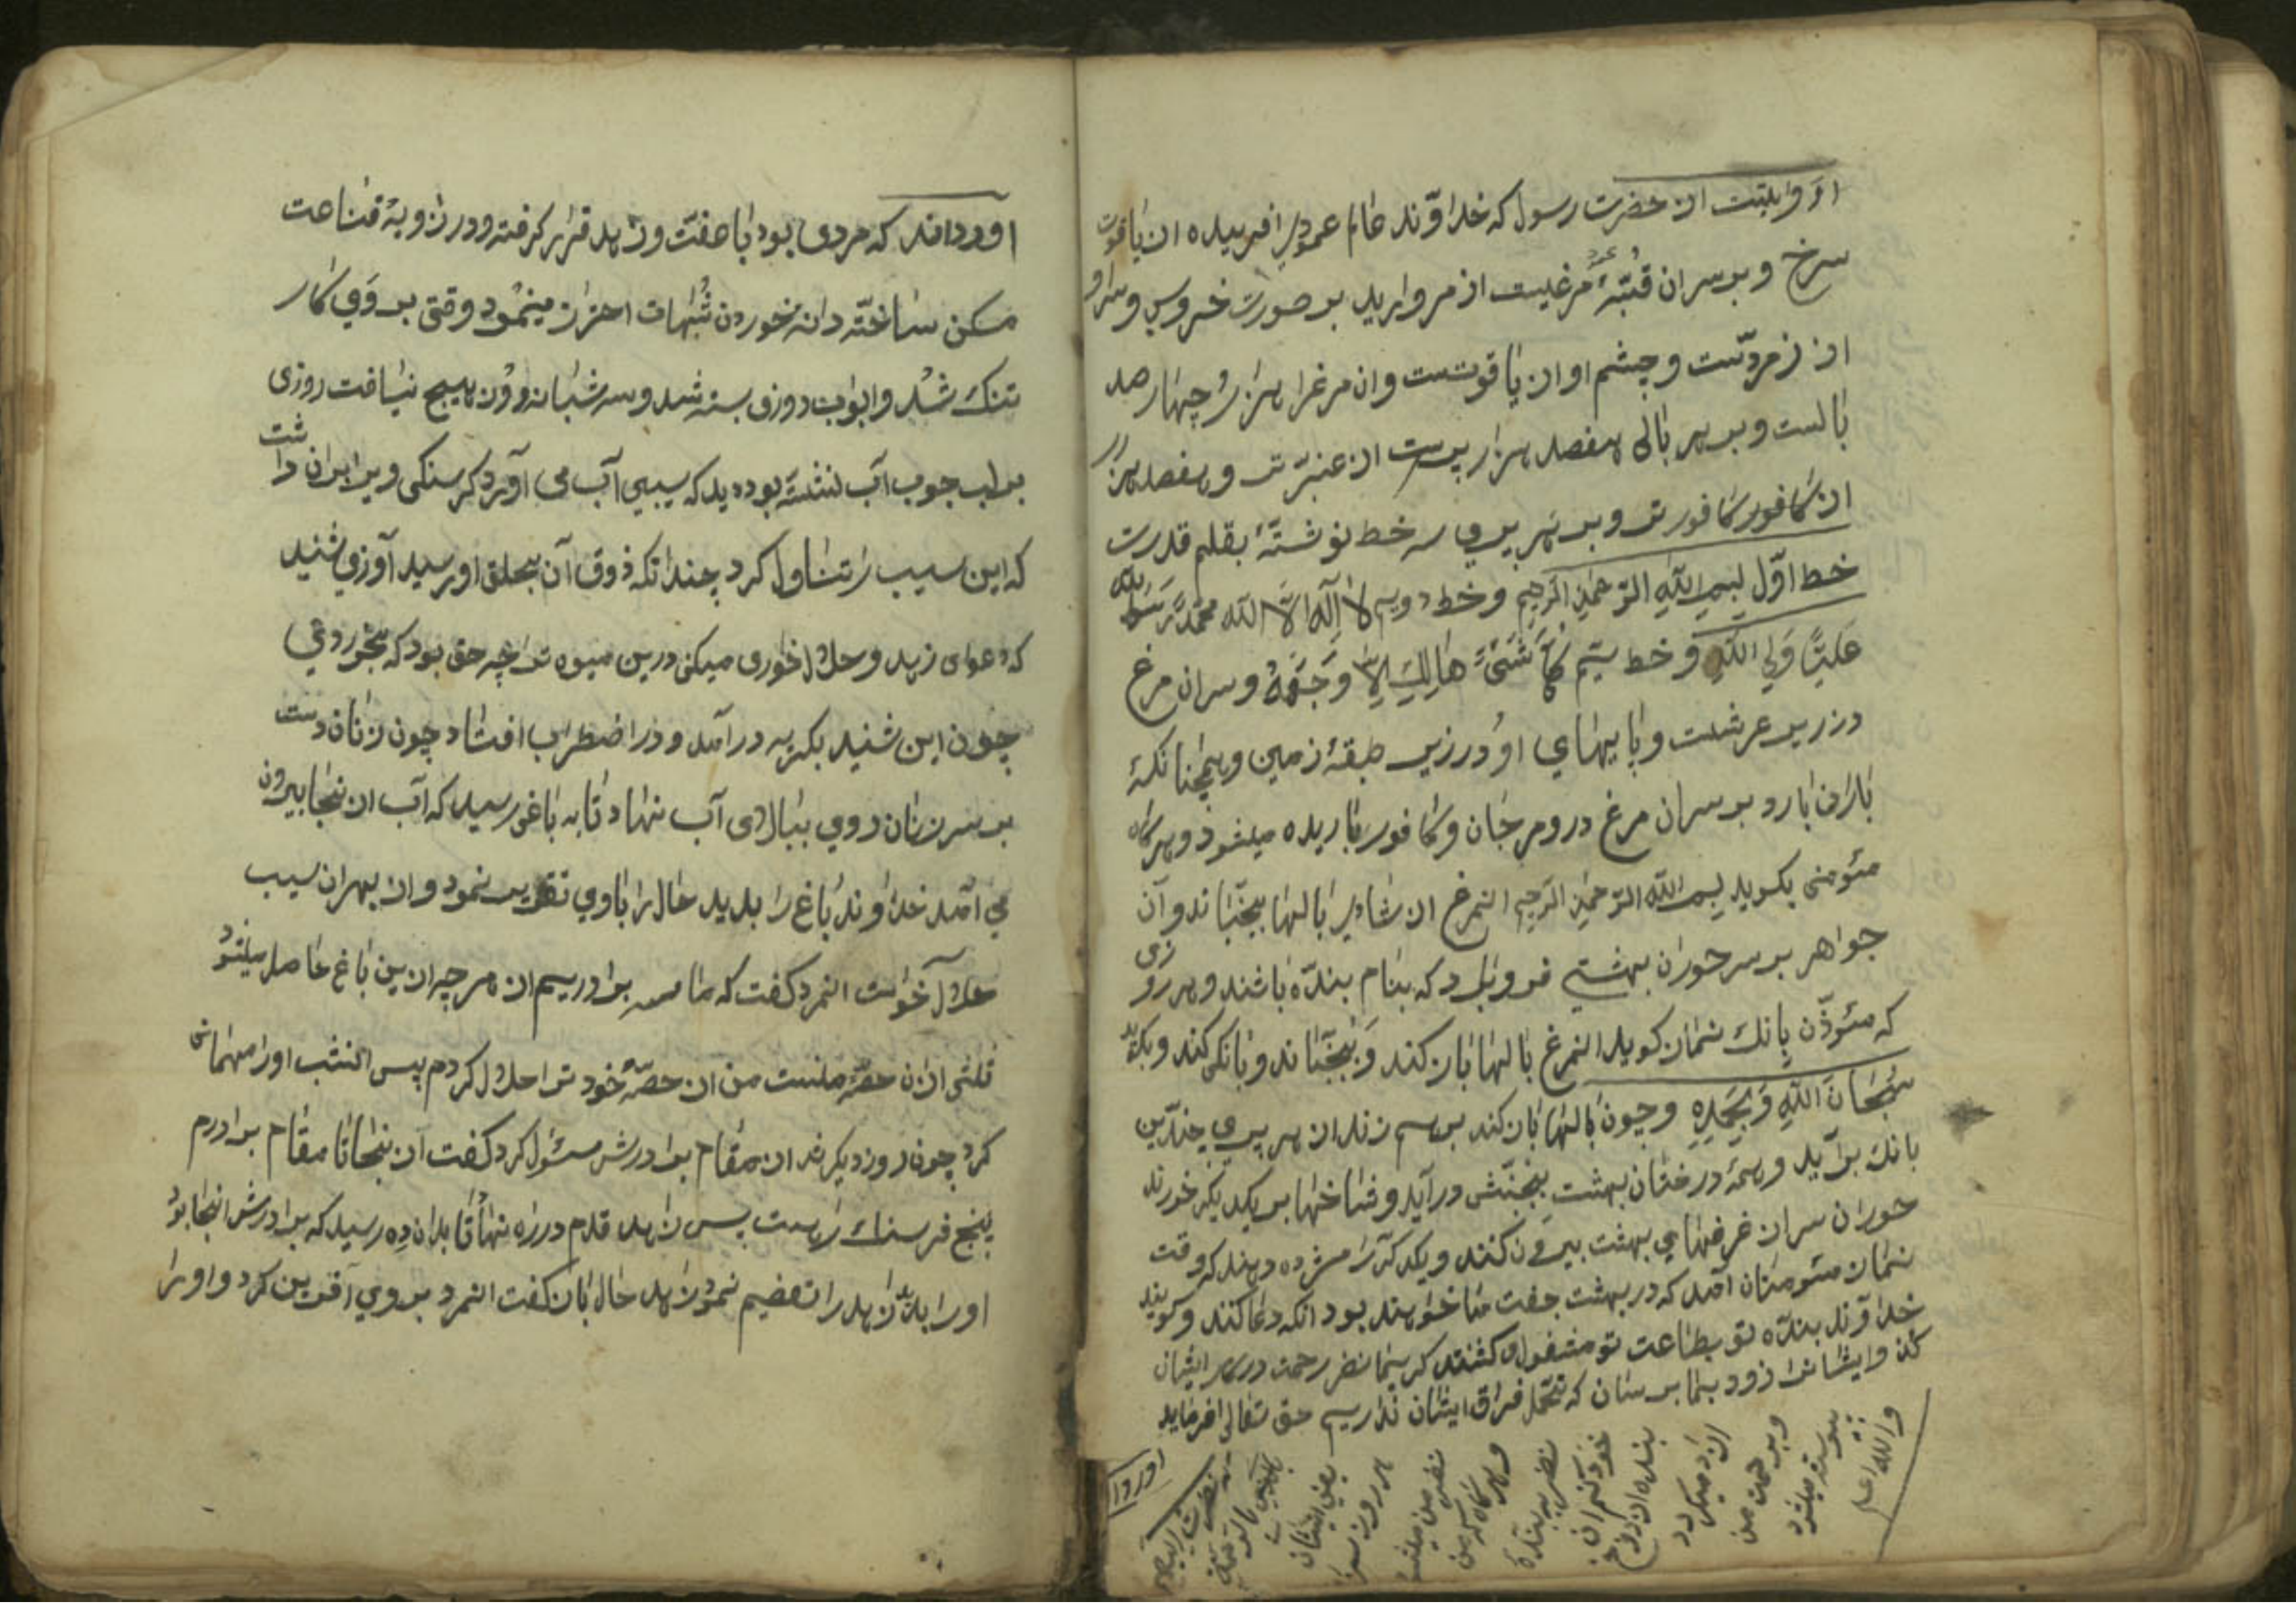 روایتست از حضرت رسول که خداوند عالم عمودی افریده از یاقوت
سرخ و بر سر ان قبّهٔ مرغیست از مروارید بر صورت خروس و سر او
از زمردست و چشم او از یاقوتست و ان مرغرا هزار و چهارصد
بالست و بر هر بالی هفصد هزار پرست از عنبر تر و هفصد هزار
از کافور کافور تر و بر هر پری سه خط نوشتهٔ بقلم قدرت
خط اوّل بسم الله الرّحمن الرّحیم و خط دویم لا اله الّا الله محمّد رسول الله
علیّا ولی الله و خط سیّم کل شیء هالک الّا وجهه و سر ان مرغ
در زیر عرشست و پایهای او در زیر طبقهٔ زمین و همچنانکهٔ
باران بارد بر سر ان مرغ در و مرجان و کافور باریده میشود و هرکاه
مئومنی بکوید بسم الله الرّحمن الرّحیم انمرغ از شادی بالها بجنباند و آن
جواهر بر سر حوران بهشتی فرو بارد که بنام بندّه باشند و هر روزی
که مئوذّن بانک نماز کوید انمرغ بالها باز کند و بجنّباند و بانکی کند و بکوید
سبحان الله و بحمده و چون بالها باز کند بر هم زند از هر پری چندین
بانک برآید و همهٔ درختان بهشت بجنبش درآید و شاخها بر یکدیکر خورند
حوران سر از غرفهای بهشت بیرون کنند و یکدکررا مژده دهند که وقت
نماز مئومنان آمد که در بهشت جفت ما خواهند بود انکه دعا کنند و کویند
خداوند بندّه تو بطاعت تو مشغول کشتند کریما نضر رحمت در کار ایشان
کن و ایشانرا زود بما برسان که تحمّل فراق ایشان نداریم حق تعالی افرماید
هر روز سر
نضر من میشد
و هرکاه که من
نظر به بندهٔ
خود کنم ان
بنده از دوزخ
ازاد میکردد
و برحمت من
پیوسته میشود
والله اعلم
اوردا
اورداند که مردی بود با عفّت و زهد قرار کرفته و در زویهٔ قناعت
مسکن ساختّه و از خوردن شبهات احتراز مینمود وقتی بر وی کار
تنک شد و ابواب روزی بسته شد و سه شبانروز هیچ نیافت روزی
بر لب جوب آب نشستهٔ بود دید که سیبی آب می آورد کرسنکی ویرا بران داشت
که این سیب را تناول کرد چندانکه ذوق آن بحلق او رسید آوزی شنید
که دعوای زهد و حلال خوری میکنی درین میوه ترا چه حق بود که بخوردی
چون این شنید بکریه درآمد و در اضطراب افتاد چون زنان دست
بر سر زنان روی ببالای آب نهاد تا به باغی رسید که آب از انجا بیرون
می آمد خداوند باغ را بدید حال را باوی تقریر نمود و از بهر ان سیب
حلال خواست انمرد کفت که ما سه برادریم از هر چه ازین باغ حاصل میشود
ثلثی ازان حصّهٔ منست من از حصّهٔ خود ترا حلال کردم پس انشب اورا مهمانی
کرد چون روز دیکر شد از مقام برادرش مسئول کرد کفت از ینجا تا مقام برادرم
پنج فرسنک راهست پس زاهد قدم در راه نهاد تا بدان ده رسید که برادرش انجا بود
اورا بدید زاهد را تعضیم نمود زاهد حال باز کفت انمرد بر وی آفرین کرد و اورا